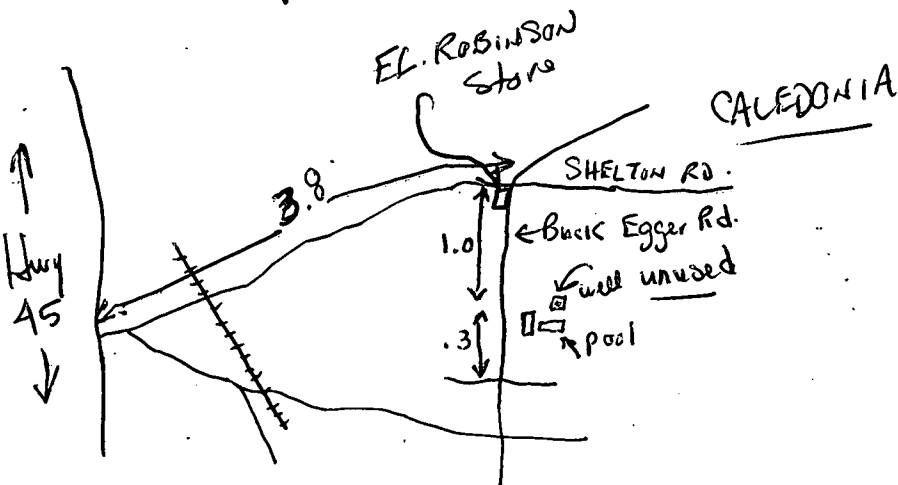 EL. ROBINSON
Store
CALEDONIA
SHELTON RD.
3.8
Hwy
45
1.0
Buck Egger Rd.
well unused
.3
pool